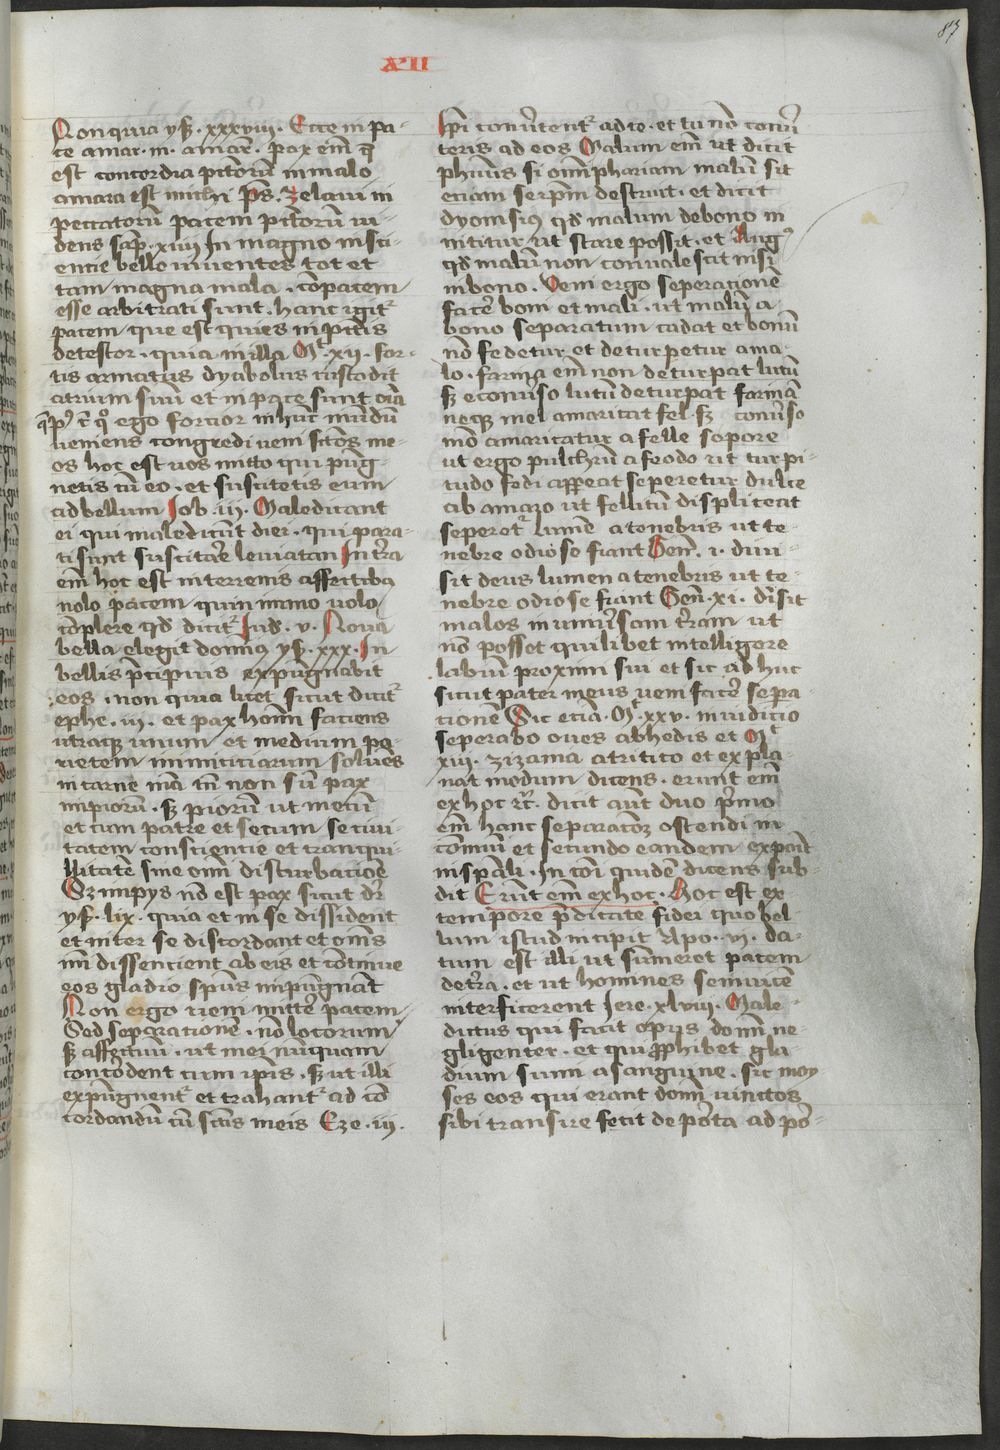 87
XII
Non quia ysͥ. xxxviii. Ecce in pa-
ce amar. m. amarͣ. pax em̄ q̄
est concordia pctōrum in malo
amara est michi Pſ. zelaui in
peccatorū pacem pctōrum ui-
dens Sap. xiiii In magno insci-
encie bello uiuentes tot et
tam magna mala . cō pacem
esse arbitrati sunt. hanc igitͬ
pacem que est quies in pctīs
detestor . quia in illa Mͭ. xii. for-
tis armatus dyabolus custodit
atrium suū et in pace sunt oīa
ego fortior in hūc mūdū
veniens congredi uem sctōs me-
os hoc est uos mitto qui pūg-
netis cū eo . et suscitetis eum
ad bellum Job . iii. Maledicant
ei qui maledicūt diei . qui para-
ti sunt suscitare leuiatan In tr̄a
em̄ hoc est in terrenis affectibꝫ
nolo pacem quin immo uolo
cōplere qd̄ dicitͬ Jud. v. Noua
bella elegit domīꝰ ysͥ. xxx. In
bellis p̄cipuis expūgnabit
eos . non quia licet sicut dicitͬ
ephe. ii. et pax hom̄ faciens
utraqꝫ unum et medium pa-
rietem inimicitiarum soluēs
in carne mͣ tn̄ non sū pax
impiorū . sꝫ piorū ut mecū
et cum patre et secum secūri-
tatem consciencie et tranqui-
llitatē sine omī disturbacioē
Sꝫ impys nō est pax sicut dr̄
ysͥ. lix. quia et in se dissident
et inter se discordant et om̄s
mī dissencient ab eis et cōtinue
eos gladio spūs impūgnāt
Non ergo ueni mittere pacem
Sed separationē . nō locorum
sꝫ affectuū . ut mei nūquam
concōdent cum ipīs . sꝫ ut illi
expūgnentͬ et trahantͬ ad cō
cordandū cū sctīs meis Eze. iii.
Ipī conūtentͬ ad te . et tu nō conū
teris ad eos Malum em̄ ut dicit
phūs si omīphariam malū sit
etiam seip̄m destruit . et dicit
dyonisiꝰ qd̄ malum de bono in
nititur ut stare possit . et Augꝰ
qd̄ malū non conualescit nisi
in bono . Veni ergo seperacionē
facere boni et mali . ut malū a
bono separatum cadat et bonū
nō fedetur et deturpetur a ma-
lo . farina em̄ non deturpat lutū
sꝫ econūso lutū deturpat farinā
neqꝫ mel amaricat fel . sꝫ conūso
mō amaricatur a felle sapore
ut ergo pulchrū a fedo ut turpi-
tudo fedi appeat seperetur dulce
ab amaro ut fellitū displiceat
seperetͬ lumē a tenebris ut te-
nebre odiose fiant Gen̄. i. diui-
sit deus lumen a tenebris ut te-
nebre odiose fiant Gen̄. xi. diͥsit
malos in uniūsam tr̄am ut
nō posset quilibet intelligere
labiū proximi sui et sic ad huc
sicut pater meus ueni facere sepa-
tionē Sic etiā . Mͭ. xxv. in iudicio
seperabo oues ab hedis et Mͭ
xiii. zizania a tritico et expla-
nat modum dicens . erunt em̄
ex hoc rͨ. dicit aūt duo p̄mo
em̄ hanc separacōꝫ ostendi in
cōmuni et secundo eandem expāit
in spāli . In cōi quidē dicens sub-
dit Erūt em̄ ex hoc . Hoc est ex
tempore p̄dicate fidei quo bel-
lum istud incipit Apo. vi. da-
tum est illi ut sumeret pacem
de tr̄a . et ut homines se inuicē
interficerent Jere. xlviii. Male-
dictus qui facit opus domī ne-
gligenter . et qui ꝓhibet gla-
dium suum a sanguine . sic moy
ses eos qui erant domī uinctos
sibi transire fecit de porta ad por-